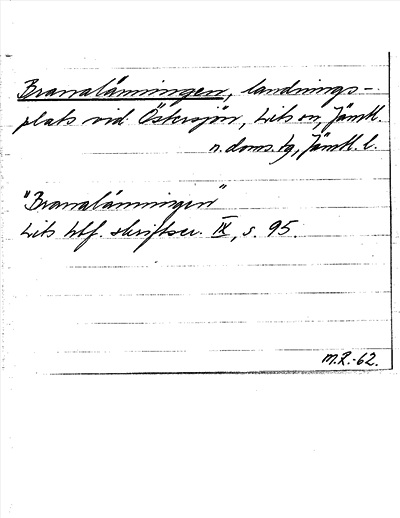 Branalänningen, landnings-
plats vid Östersjön, Lits sn, Jämtl.
n. doms. tg, Jämtl. l.
"Branalänningen"
Lits hbf. skriftser. IX, s. 95.
M.R.-62.